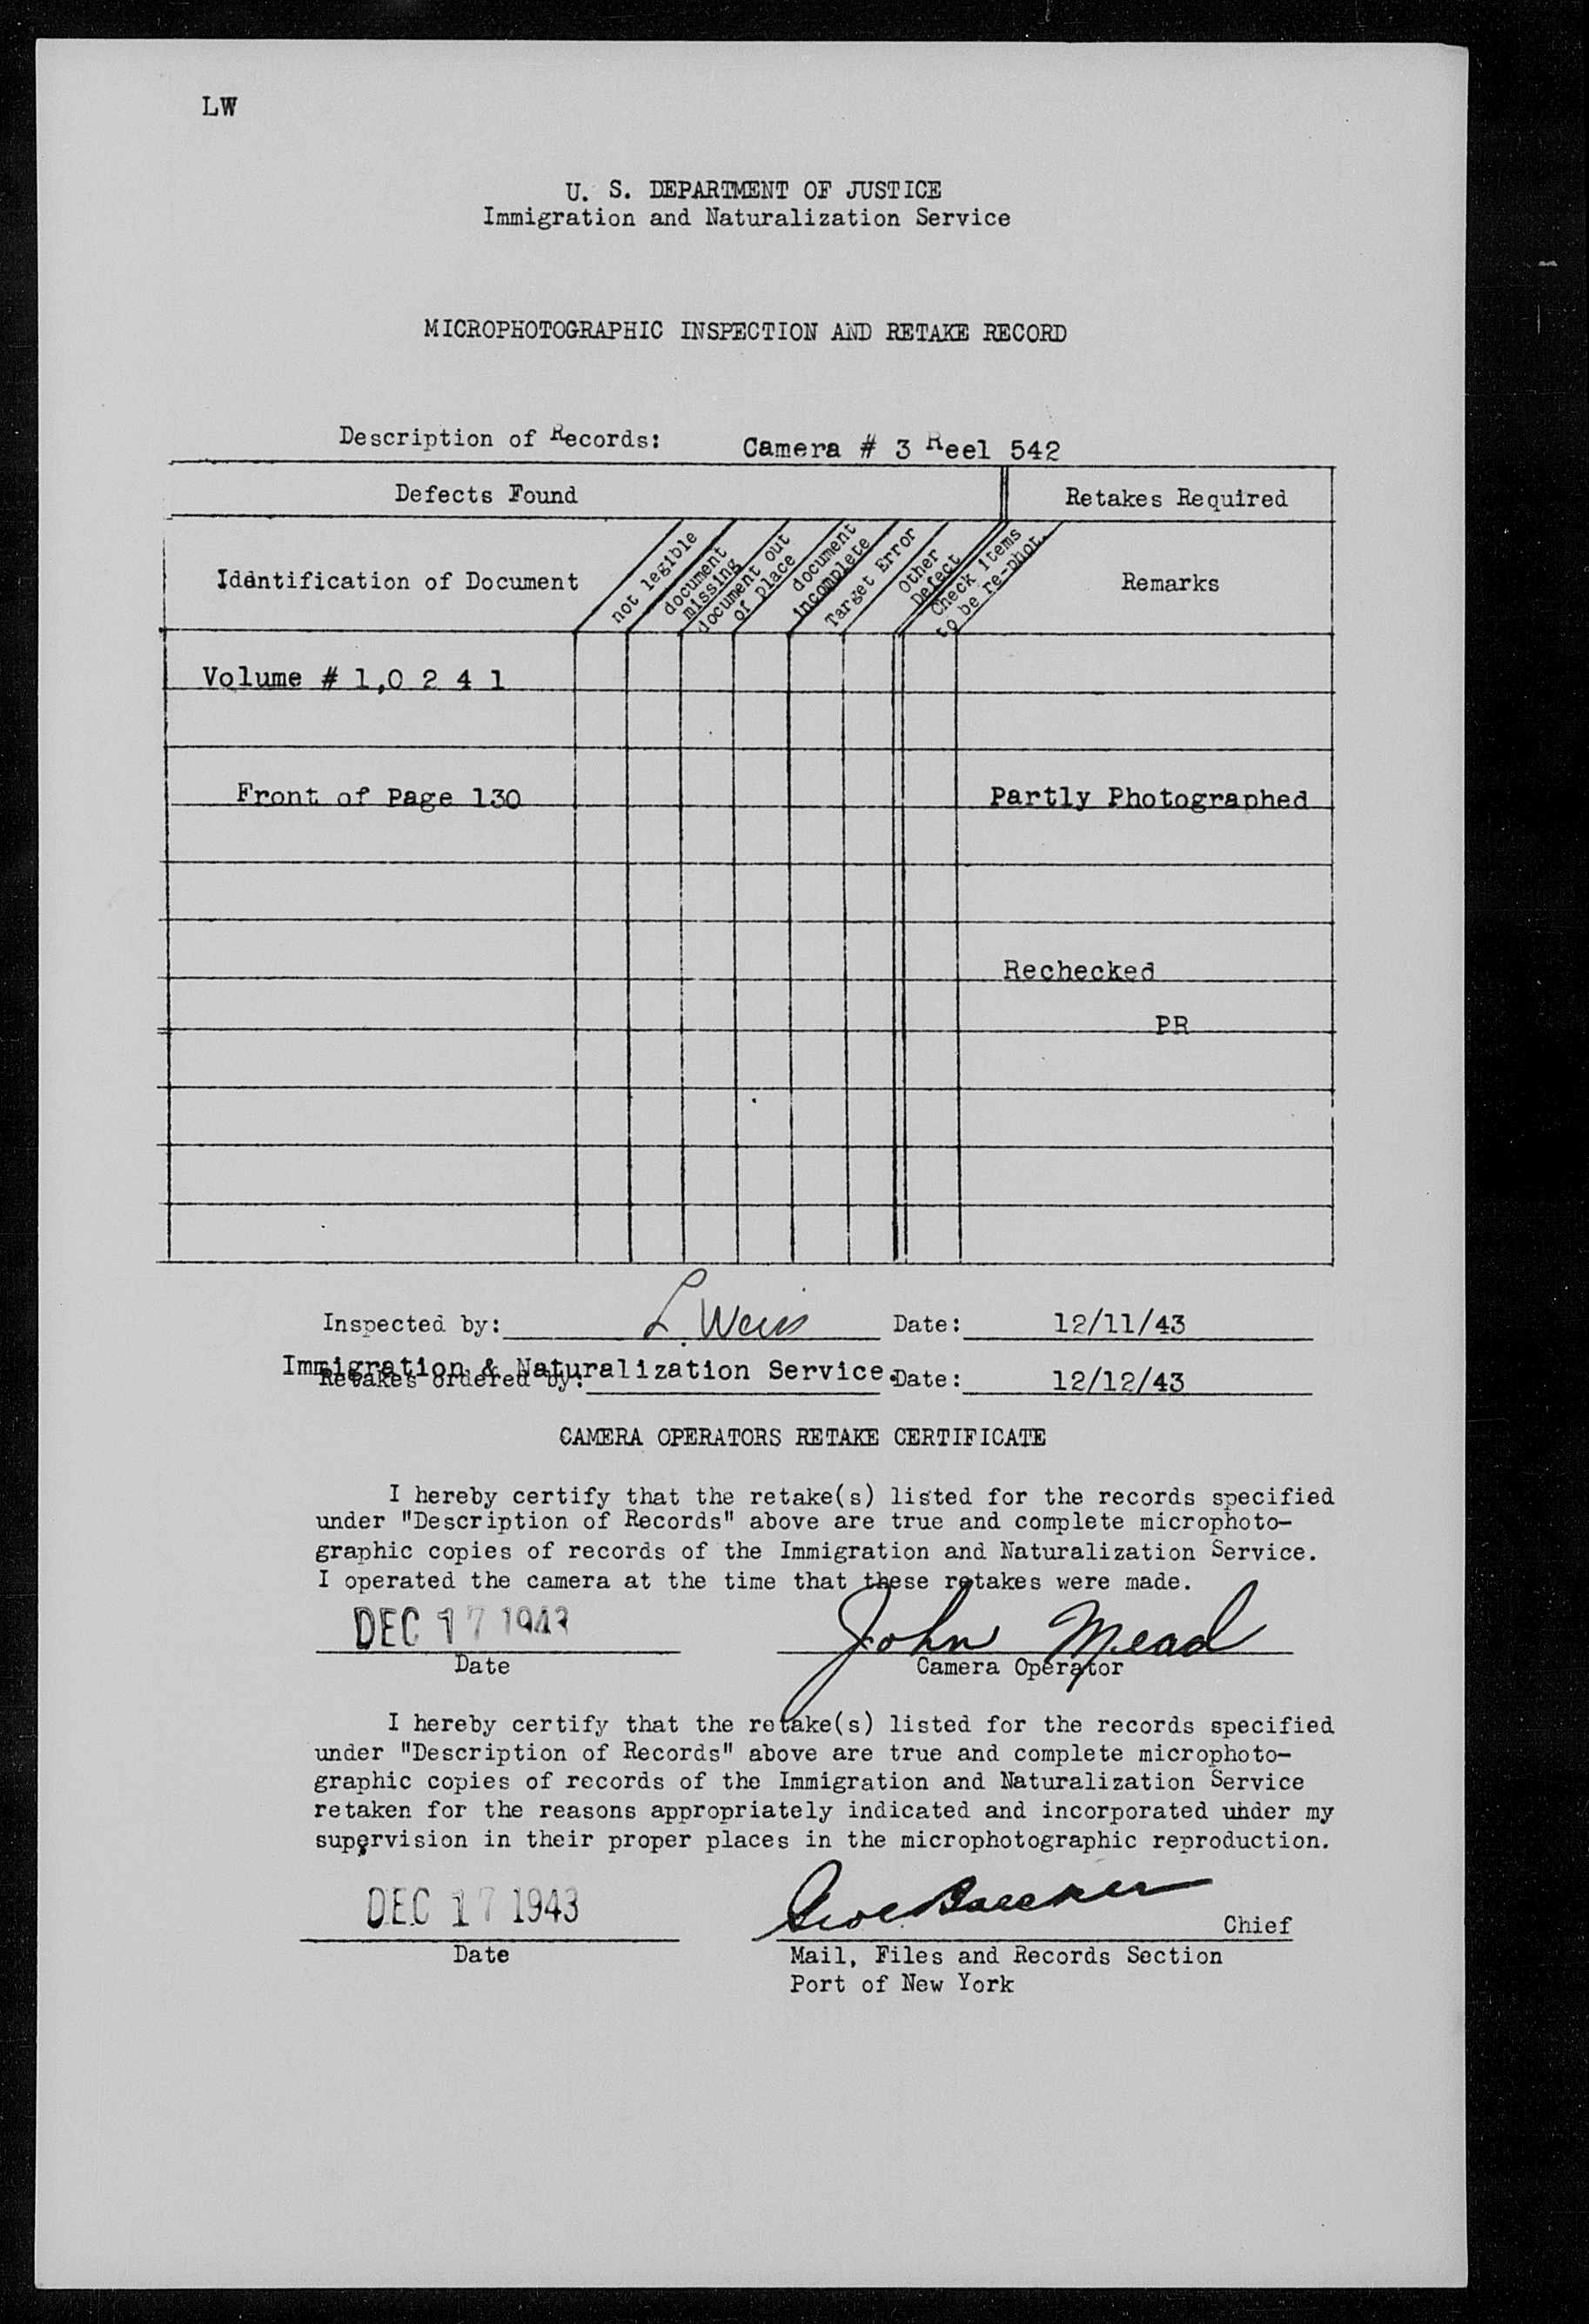 LW
U. S. DEPARTMENT OF JUSTICE
Immigration and Naturalization Service
MICROPHOTOGRAPHIC INSPECTION AND RETAKE RECORD
Description of Records: Camera # 3 Reel 542
Defects Found Retakes Required
Identification of Document
not legible
document missing
document out of place
document incomplete
Target Error
Other Defect
Check items to be re-phot.
Remarks
Volume # 1,0 2 4 1
Front of Page 130 Partly Photographed
Rechecked
PR
Inspected by: L. Weiss Date: 12/11/43
Immigration & Naturalization Service.
Retakes ordered by: Date: 12/12/43
CAMERA OPERATORS RETAKE CERTIFICATE
I hereby certify that the retake(s) listed for the records specified
under "Description of Records" above are true and complete microphoto-
graphic copies of records of the Immigration and Naturalization Service.
I operated the camera at the time that these retakes were made.
DEC 17 1943 John Mead
Date Camera Operator
I hereby certify that the retake(s) listed for the records specified
under "Description of Records" above are true and complete microphoto-
graphic copies of records of the Immigration and Naturalization Service
retaken for the reasons appropriately indicated and incorporated under my
supervision in their proper places in the microphotographic reproduction.
DEC 17 1943 Chief
Date Mail, Files and Records Section
Port of New York